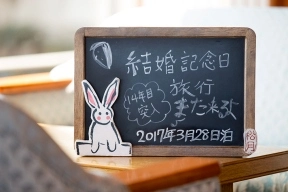 結婚記念日
旅行
14年目
突入
また来るよ
2017年3月28日泊